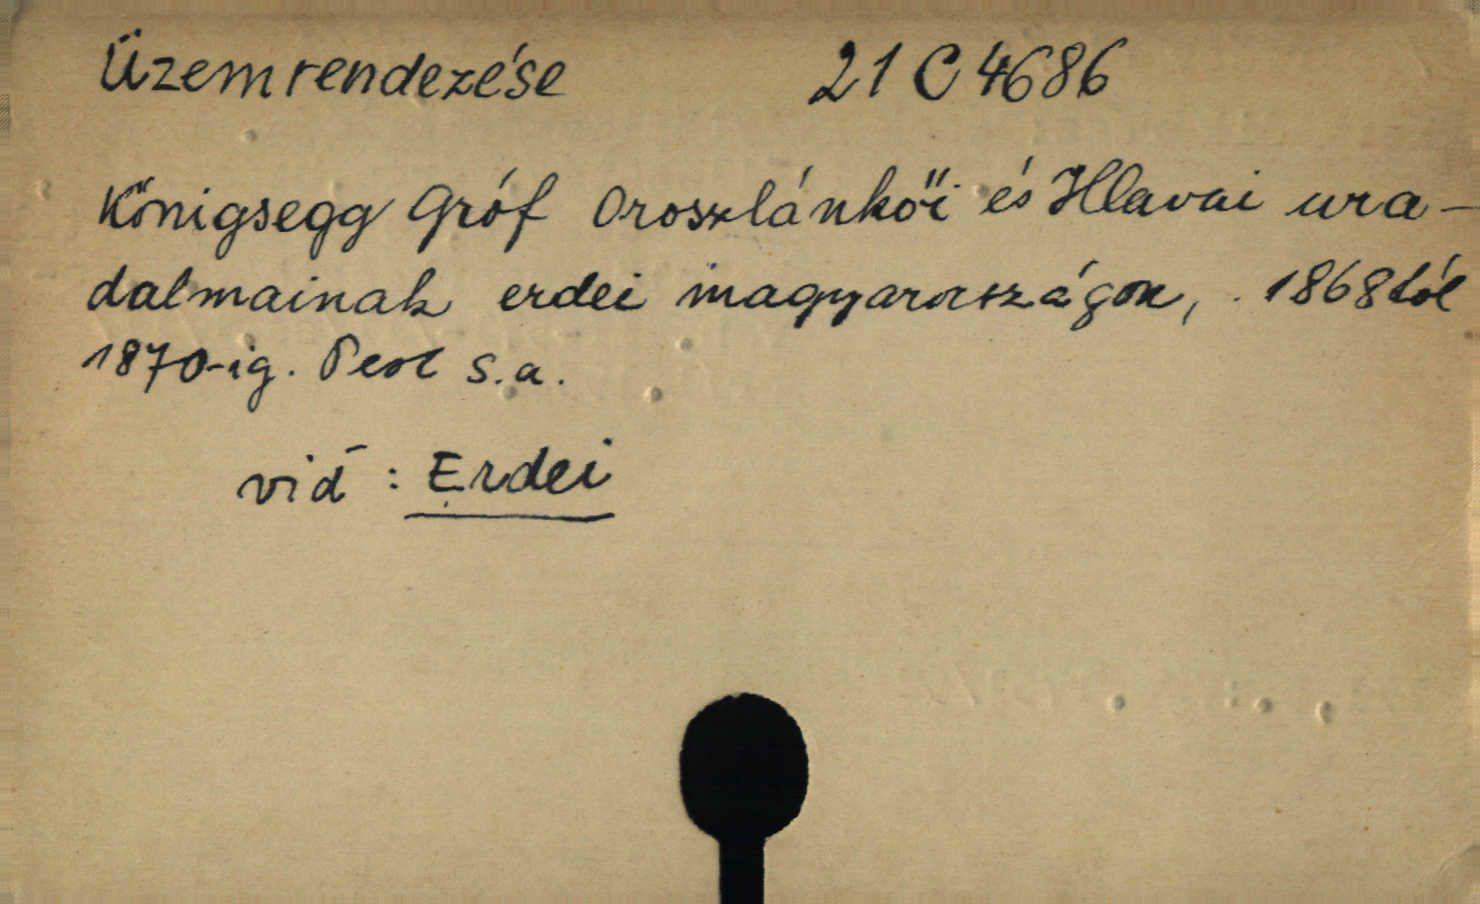 Üzemrendezése 21 C 4686
Königsegg Gróf Oroszlánkői és Hlavai ura-
dalmainak erdei magyarországon, 1868tól
1870-ig. Pest s.a.
vid : Erdei